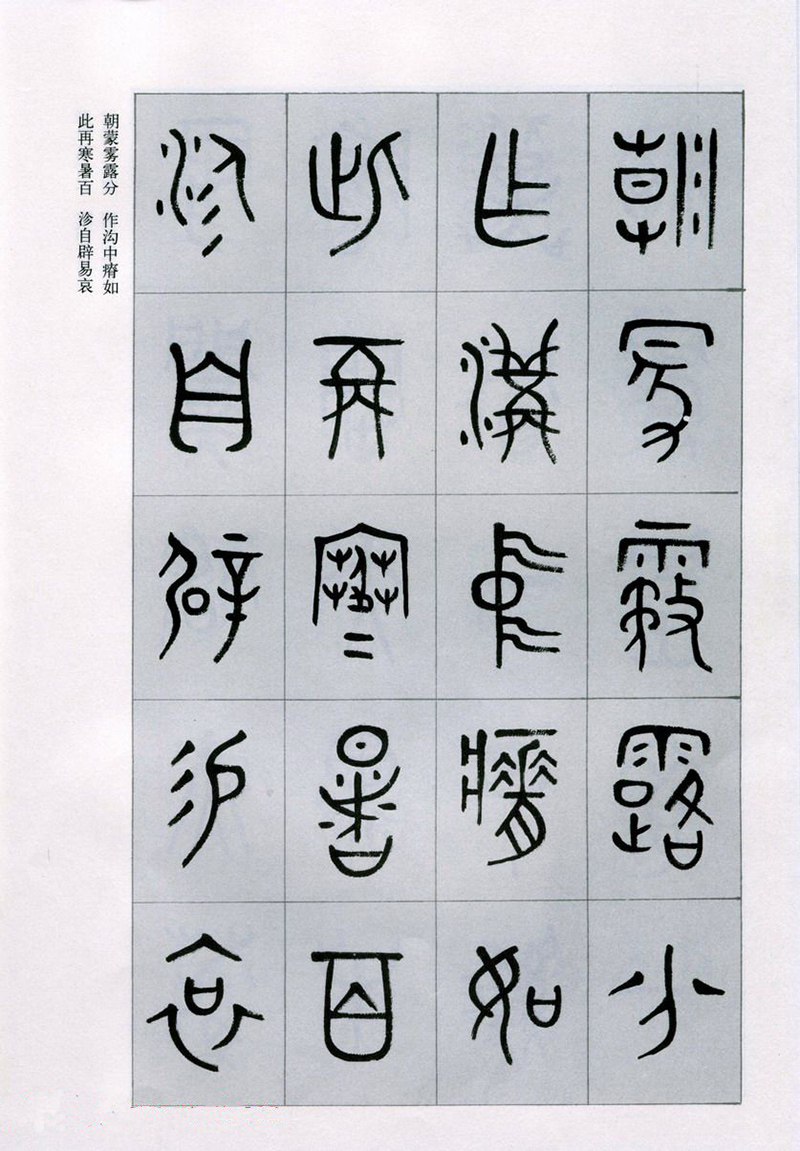 朝蒙霧露分
作溝中瘠如
此再寒暑百
沴自辟易哀
朝蒙雾露分 作沟中瘠如
此再寒暑百 沴自辟易哀